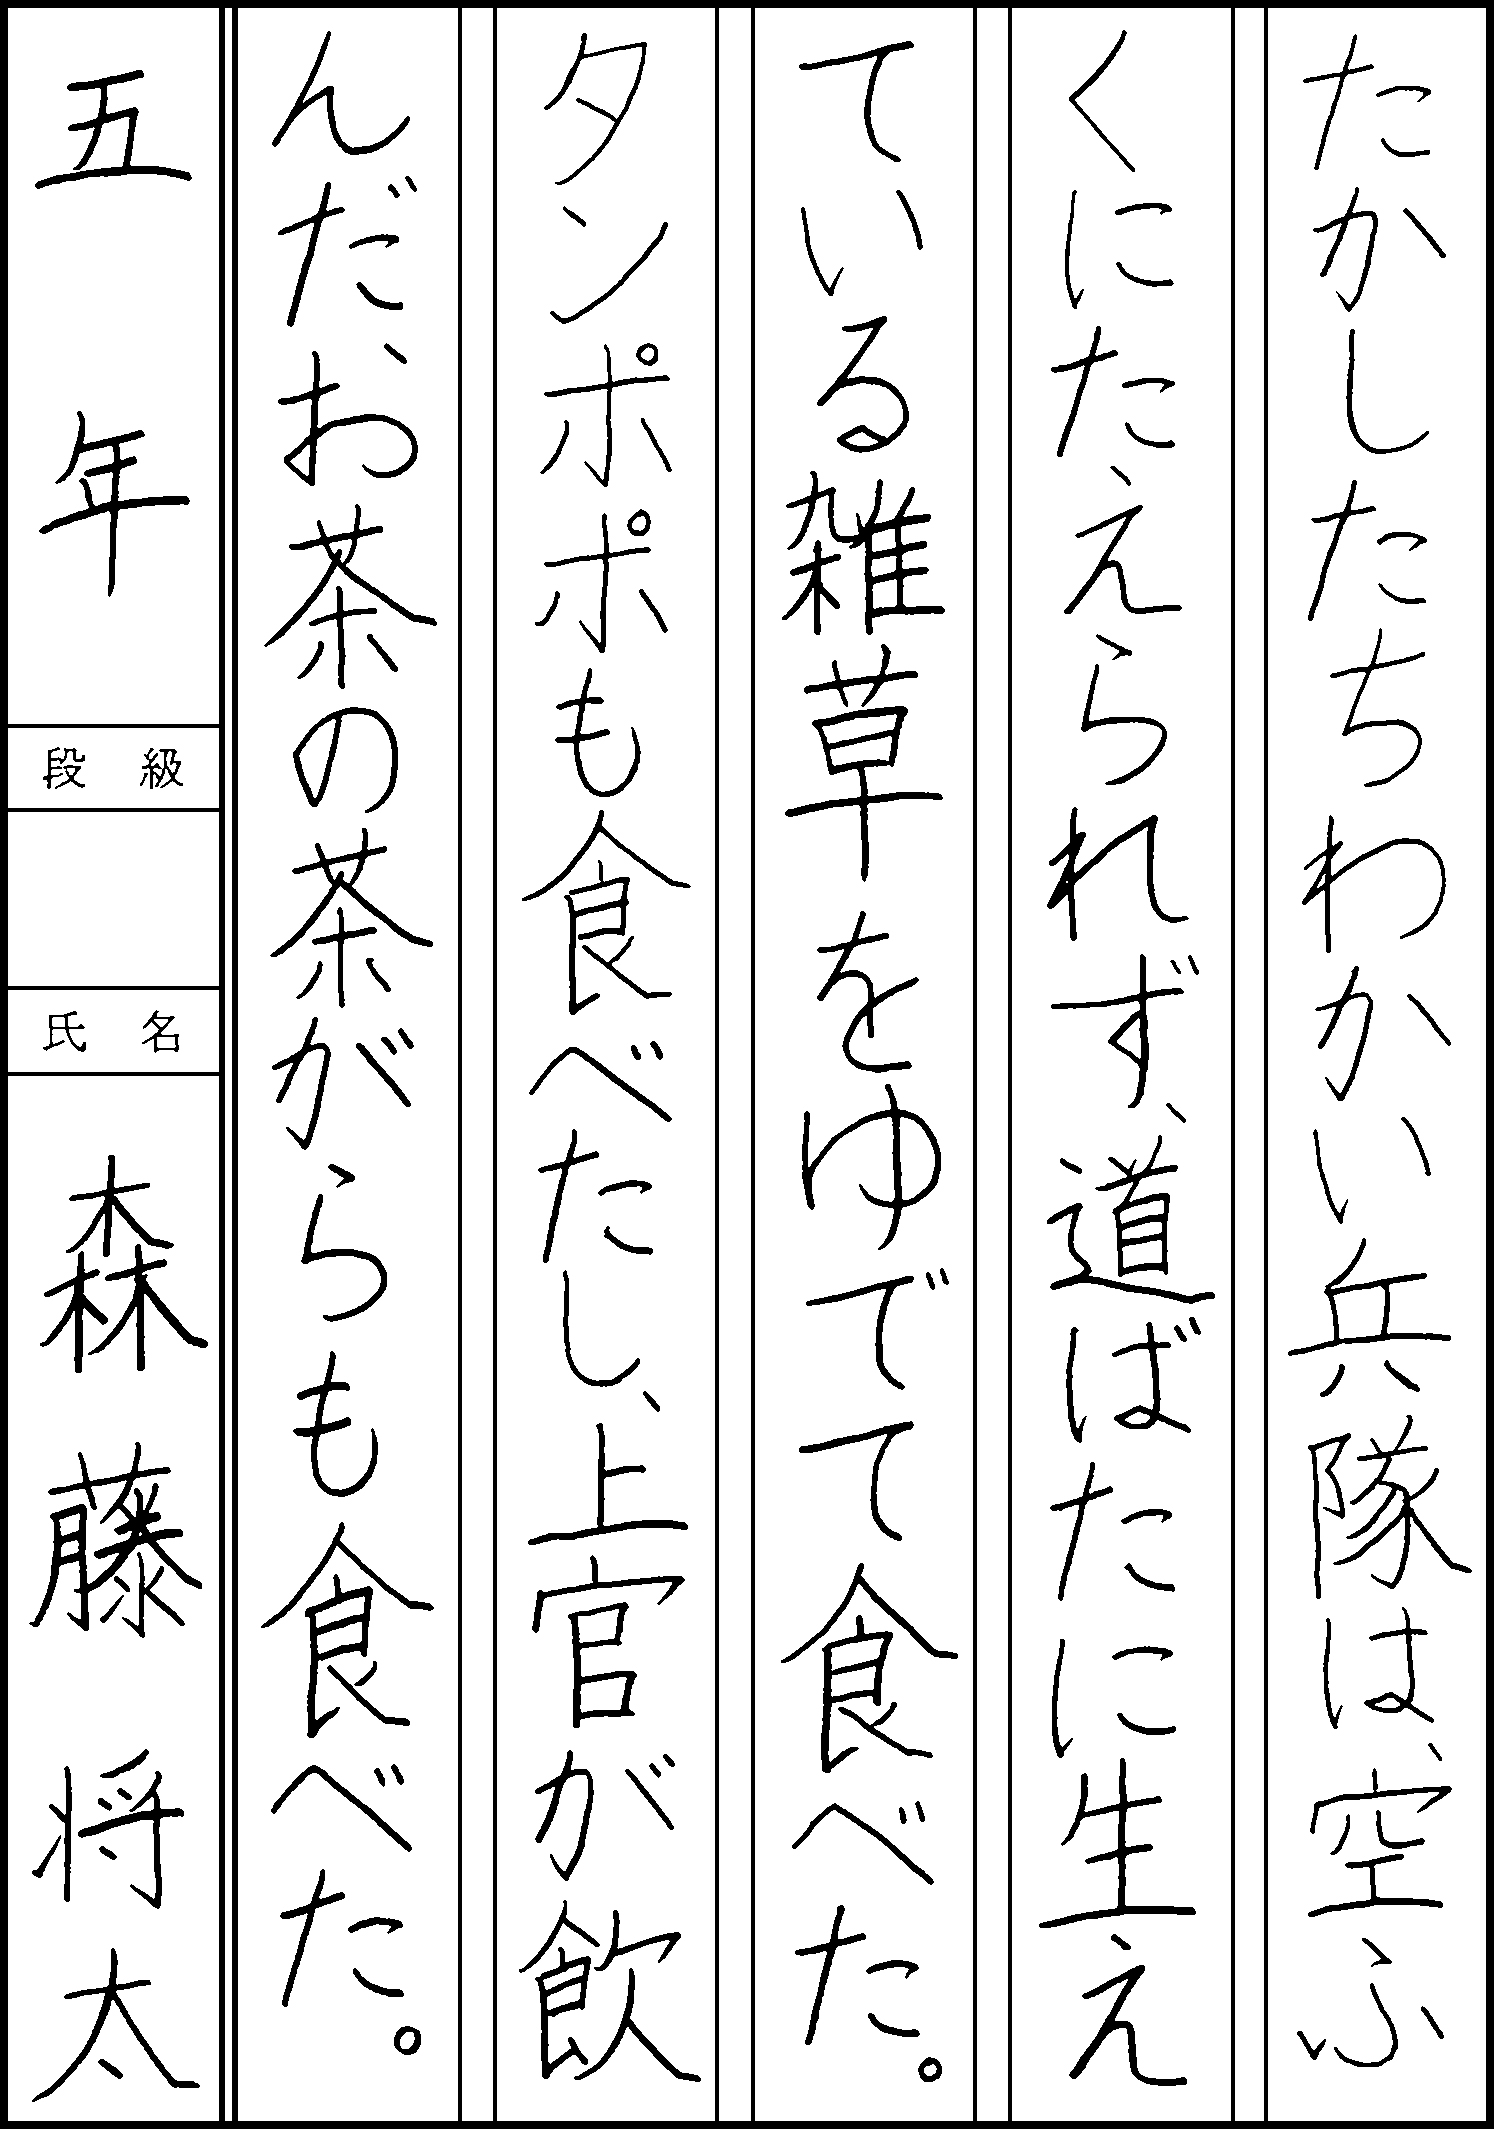 たかしたちわかい兵隊は、空ふ
くにたえられず、道ばたに生え
ている雑草をゆでて食べた。
タンポポも食べたし、上官が飲
んだ、お茶の茶がらも食べた。
五年
段級
氏名
森藤将太